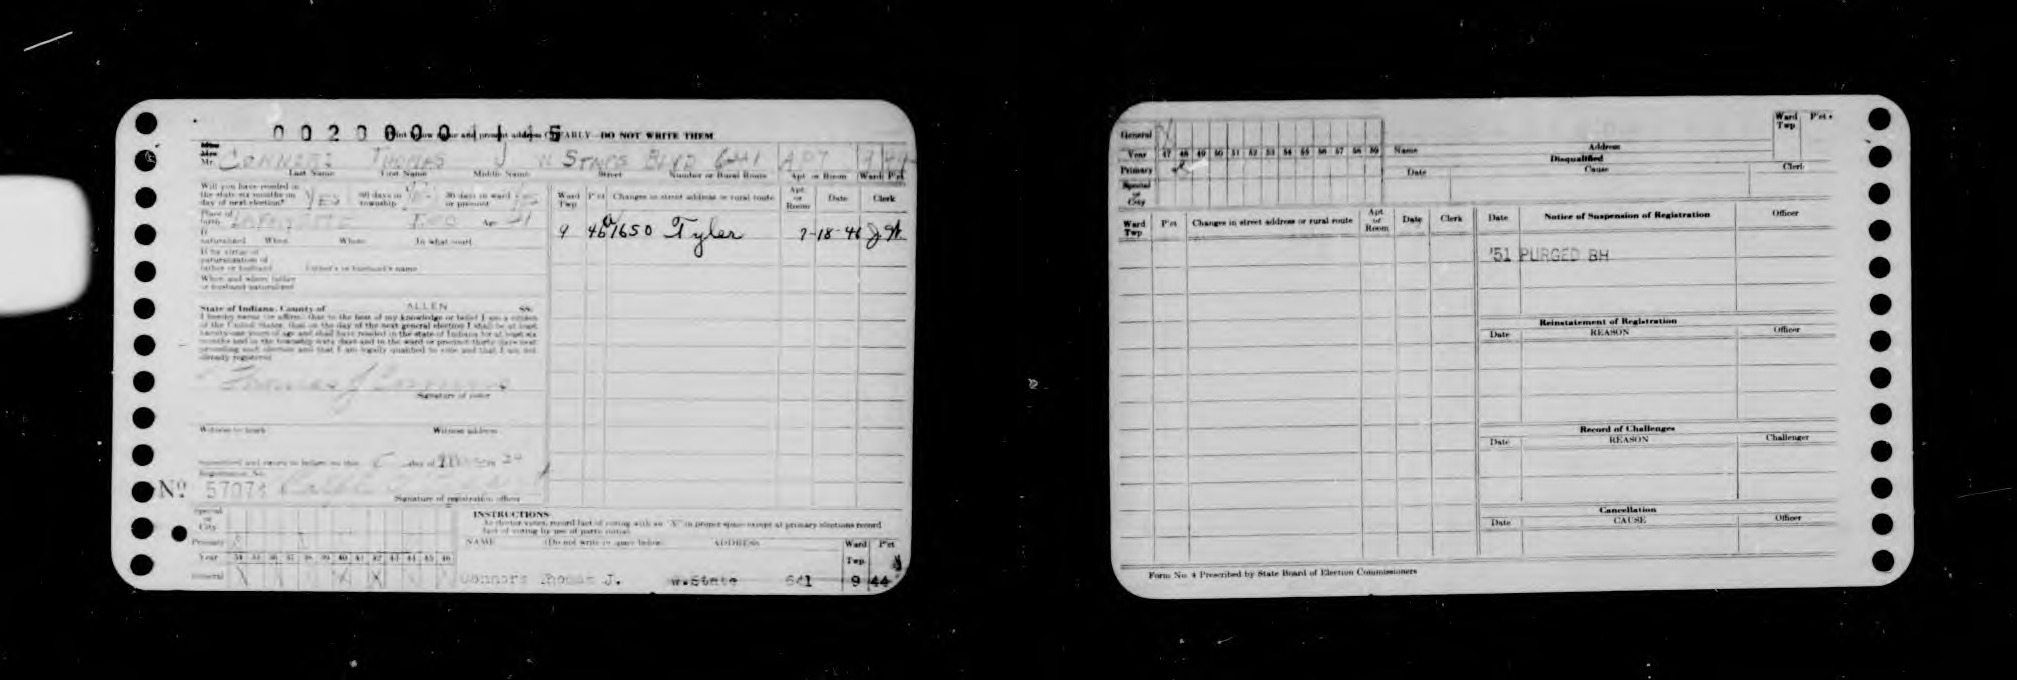 0020000 1145
Print below name and present address CLEARLY—DO NOT WRITE THEM
Miss
Mrs
Mr. CONNERS THOMAS J W STATE BLVD 641 APT 9 44
Last Name First Name Middle Name Street Number or Rural Route Apt or Room Ward Pct
Will you have resided in the state six months on day of next election? YES 60 days in township 30 days in ward or precinct
Place of birth LAFAYETTE IND Age
If naturalized When Where In what court
If by virtue of naturalization of father or husband Father's or husband's name
When and where father or husband naturalized
State of Indiana, County of ALLEN SS:
I hereby swear (or affirm) that to the best of my knowledge or belief I am a citizen
of the United States, that on the day of the next general election I shall be at least
twenty-one years of age and shall have resided in the state of Indiana for at least six
months and in the township sixty days and in the ward or precinct thirty days next
preceding such election and that I am legally qualified to vote and that I am not
already registered
Thomas J Conners
Signature of voter
Witness to mark Witness address
Subscribed and sworn to before me this day of
Registration No.
No 57074
Signature of registration officer
Ward Twp Pct Changes in street address or rural route Apt. or Room Date Clerk
9 46 1650 Tyler 7-18-46
Special or City
Primary
Year 34 35 36 37 38 39 40 41 42 43 44 45 46
General X X X X X X
INSTRUCTIONS
As elector votes, record fact of voting with an "X" in proper space except at primary elections record
fact of voting by use of party initial
NAME (Do not write in space below) ADDRESS Ward Twp. Pct
Connors Thomas J. W.State 641 9 44
General X
Year 47 48 49 50 51 52 53 54 55 56 57 58 59
Primary R
Special or City
Name Address Ward Twp Pct
Disqualified
Date Cause Clerk
Ward Twp Pct Changes in street address or rural route Apt. or Room Date Clerk
Date Notice of Suspension of Registration Officer
'51 PURGED BH
Reinstatement of Registration
Date REASON Officer
Record of Challenges
Date REASON Challenger
Cancellation
Date CAUSE Officer
Form No. 4 Prescribed by State Board of Election Commissioners